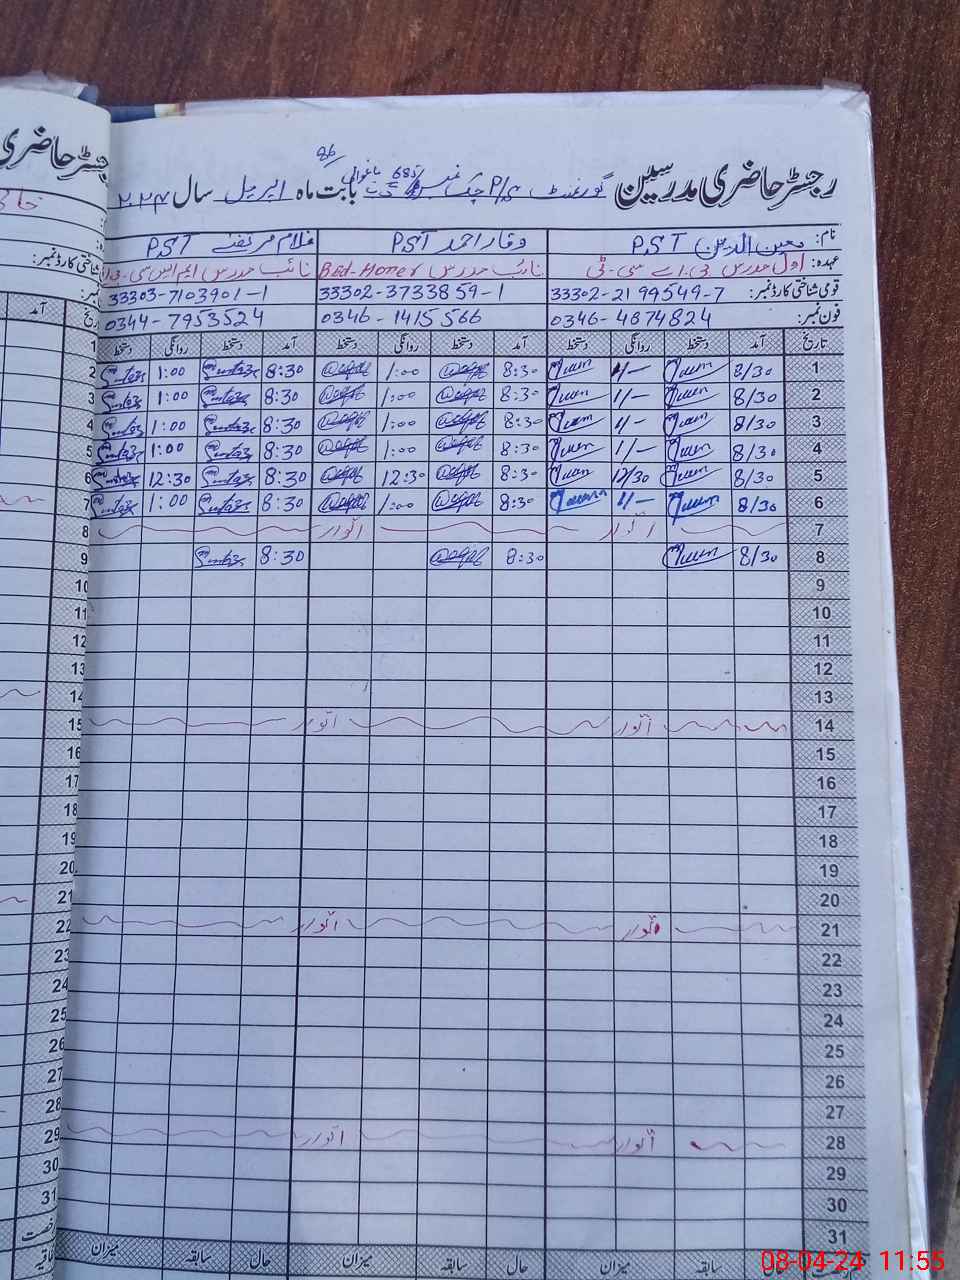 رجسٹر حاضری مدرسین گورنمنٹ P/S چک نمبر 685 بابت ماہ اپریل سال ۲۰۲۴
86
نام: معین الدین PST وقار احمد PST غلام مرتضیٰ PST
عہدہ: اول مدرس بی.اے سی.ٹی نائب مدرس Bed-Honer نائب مدرس ایم ایس سی
قومی شناختی کارڈ نمبر: 33302-2199549-7 33302-3733859-1 33303-7103901-1
فون نمبر: 0346-4874824 0346-1415566 0344-7953524
تاریخ آمد دستخط روانگی دستخط آمد دستخط روانگی دستخط آمد دستخط روانگی دستخط
1 8/30 1/- 8:30 1:00 8:30 1:00
2 8/30 1/- 8:30 1:00 8:30 1:00
3 8/30 1/- 8:30 1:00 8:30 1:00
4 8/30 1/- 8:30 1:00 8:30 1:00
5 8/30 12/30 8:30 12:30 8:30 12:30
6 8/30 1/- 8:30 1:00 8:30 1:00
7 اتوار اتوار
8 8/30 8:30 8:30
9
10
11
12
13
14 اتوار اتوار
15
16
17
18
19
20
21 اتوار اتوار
22
23
24
25
26
27
28 اتوار اتوار
29
30
31
حال سابقہ میزان حال سابقہ میزان حال سابقہ میزان
08-04-24 11:55